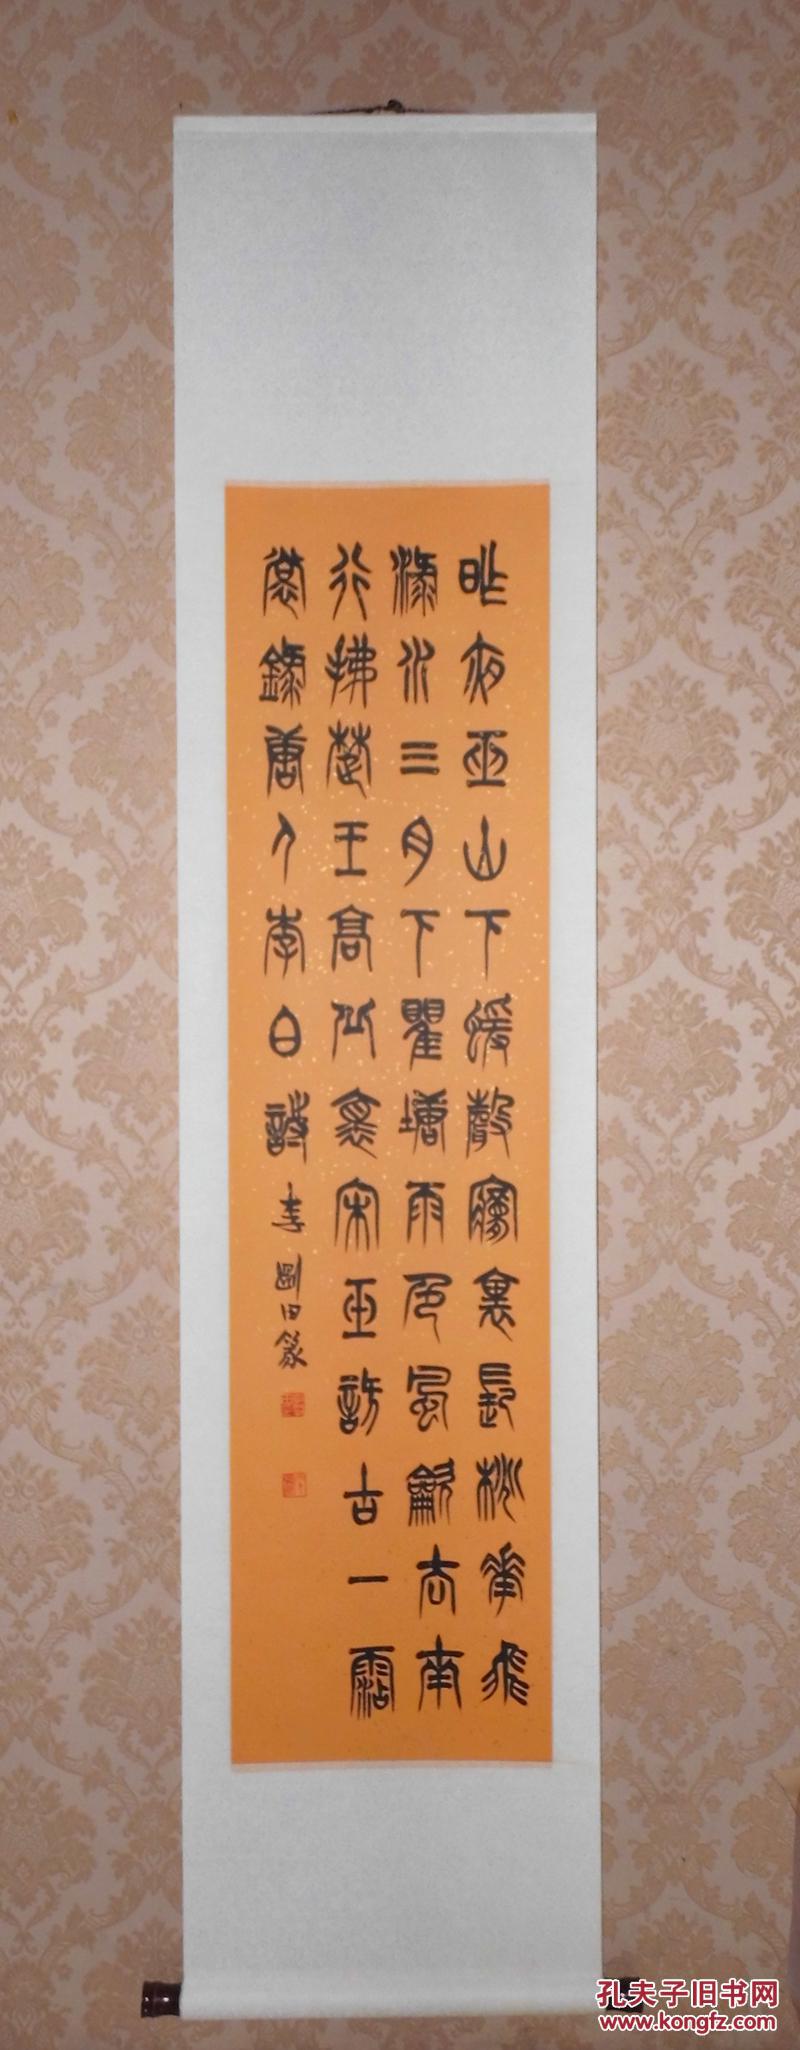 昨夜巫山下猨聲夢裏長桃華飛
淥水三月下瞿塘雨色風龡去南
行拂楚王高丘懷宋玉訪古一霑
裳錄唐人李白詩 李剛田篆
孔夫子旧书网
www.kongfz.com